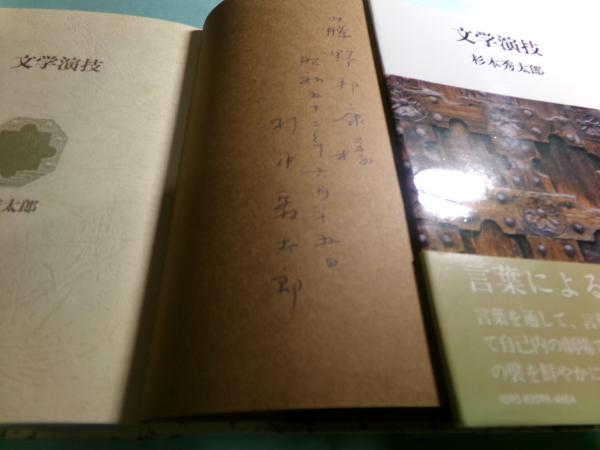 文学演技
太郎
藤野邦康様
昭和五十二年六月十五日
杉本秀太郎
文学演技
杉本秀太郎
言葉による
言葉を通して、言
て自己内の劇場で
の襞を鮮やかに
0095-82098-4604